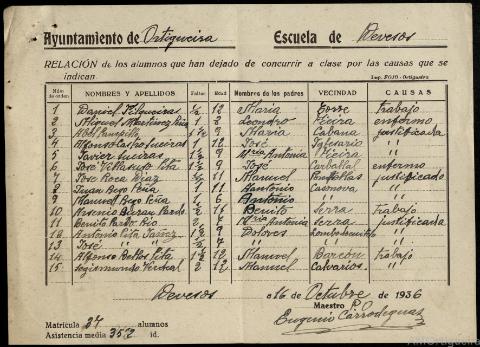 Ayuntamiento de Ortigueira Escuela de Devesos
RELACIÓN de los alumnos que han dejado de concurrir a clase por las causas que se
indican
Imp. FOJO-Ortigueira
Núm. de orden NOMBRES Y APELLIDOS Faltas Edad Nombres de los padres VECINDAD CAUSAS
1 Daniel Filgueira ½ 12 María Torre trabajo
2 Miguel Martínez Peña 1 8 Leandro Pieira enfermo
3 Abel 1½ 9 María Cabana justificada
4 Alfonso Castro Fueiras 12 José Iglesario "
5 Javier Fueiras 9 Mª Antonia Pieira "
6 José Villasuso Pita 9 José Carballal enfermo
7 José Roca Díaz 11 Manuel justificado
8 Juan Rego Peña 1 11 Antonio Casnova "
9 Manuel Rego Peña 6 Antonio "
10 Arsenio Durán Pardo 2 11 Benito Serra trabajo
11 Benito Pardo Mª Antonia Serra justificada
12 Antonio Pita Yáñez 9 Dolores "
13 José " " 7 " " "
14 Alfonso Bellos Pita 1½ 12 Manuel Barcón trabajo
15 Segismundo 2 12 Manuel Calvarios "
Devesos a 16 de Octubre de 1936
Maestro P.O.
Matrícula 37 alumnos
Eugenio Carrodeguas
Asistencia media 35'2 id.